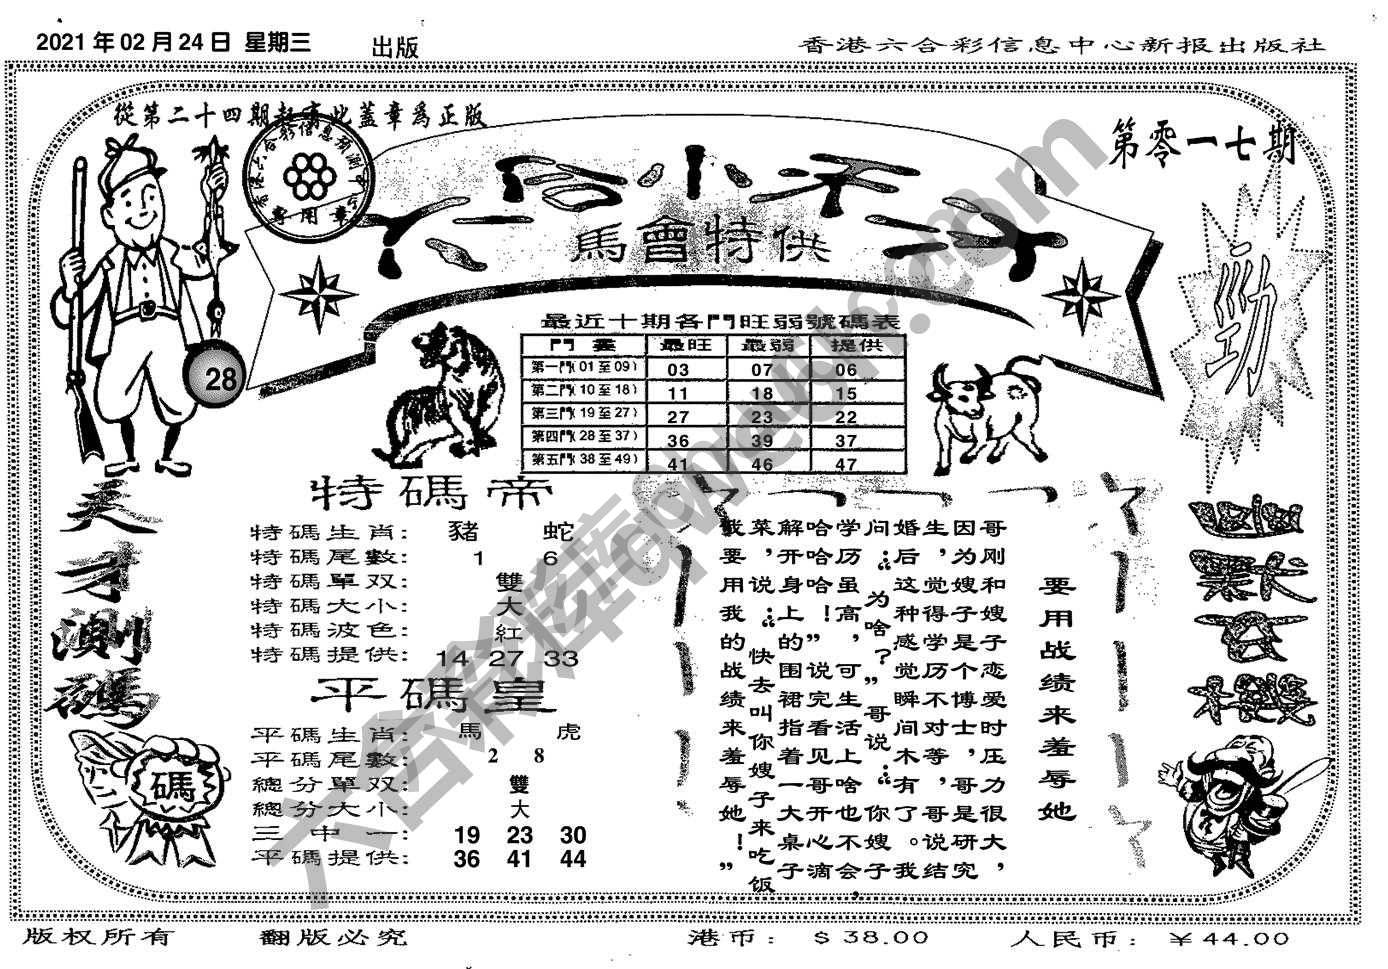 2021 年 02 月 24 日 星期三
出版
香港六合彩信息中心新报出版社
從第二十四期起
此蓋章爲正版
第零一七期
六合小禾
馬會特供
勁
28
最近十期各門旺弱號碼表
門 最旺 最弱 提供
第一門(01 至 09) 03 07 06
第二門(10 至 18) 11 18 15
第三門(19 至 27) 27 23 22
第四門(28 至 37) 36 39 37
第五門(38 至 49) 41 46 47
天才測碼
碼
特碼帝
特碼生肖: 豬 蛇
特碼尾數: 1 6
特碼單双: 雙
特碼大小: 大
特碼波色: 紅
特碼提供: 14 27 33
平碼皇
平碼生肖: 馬 虎
平碼尾數: 2 8
總分單双: 雙
總分大小: 大
三 中 一: 19 23 30
平碼提供: 36 41 44
要用战绩来羞辱她
哥刚和嫂子恋爱时压力很大，
因为嫂子是个博士，哥是研究
生，觉得学历不对等，哥说结
婚后这种感觉瞬间木有了。我
问：“为啥？”哥说：“你嫂子
学历虽高，可生活上啥也不会，
哈哈哈！”说完看见哥开心滴
解开身上的围裙指着一大桌子
菜，说：“快去叫你嫂子来吃饭，
我要用我的战绩来羞辱她！”
六合彩库
版权所有
翻版必究
港币： $ 38.00
人民币： ￥44.00